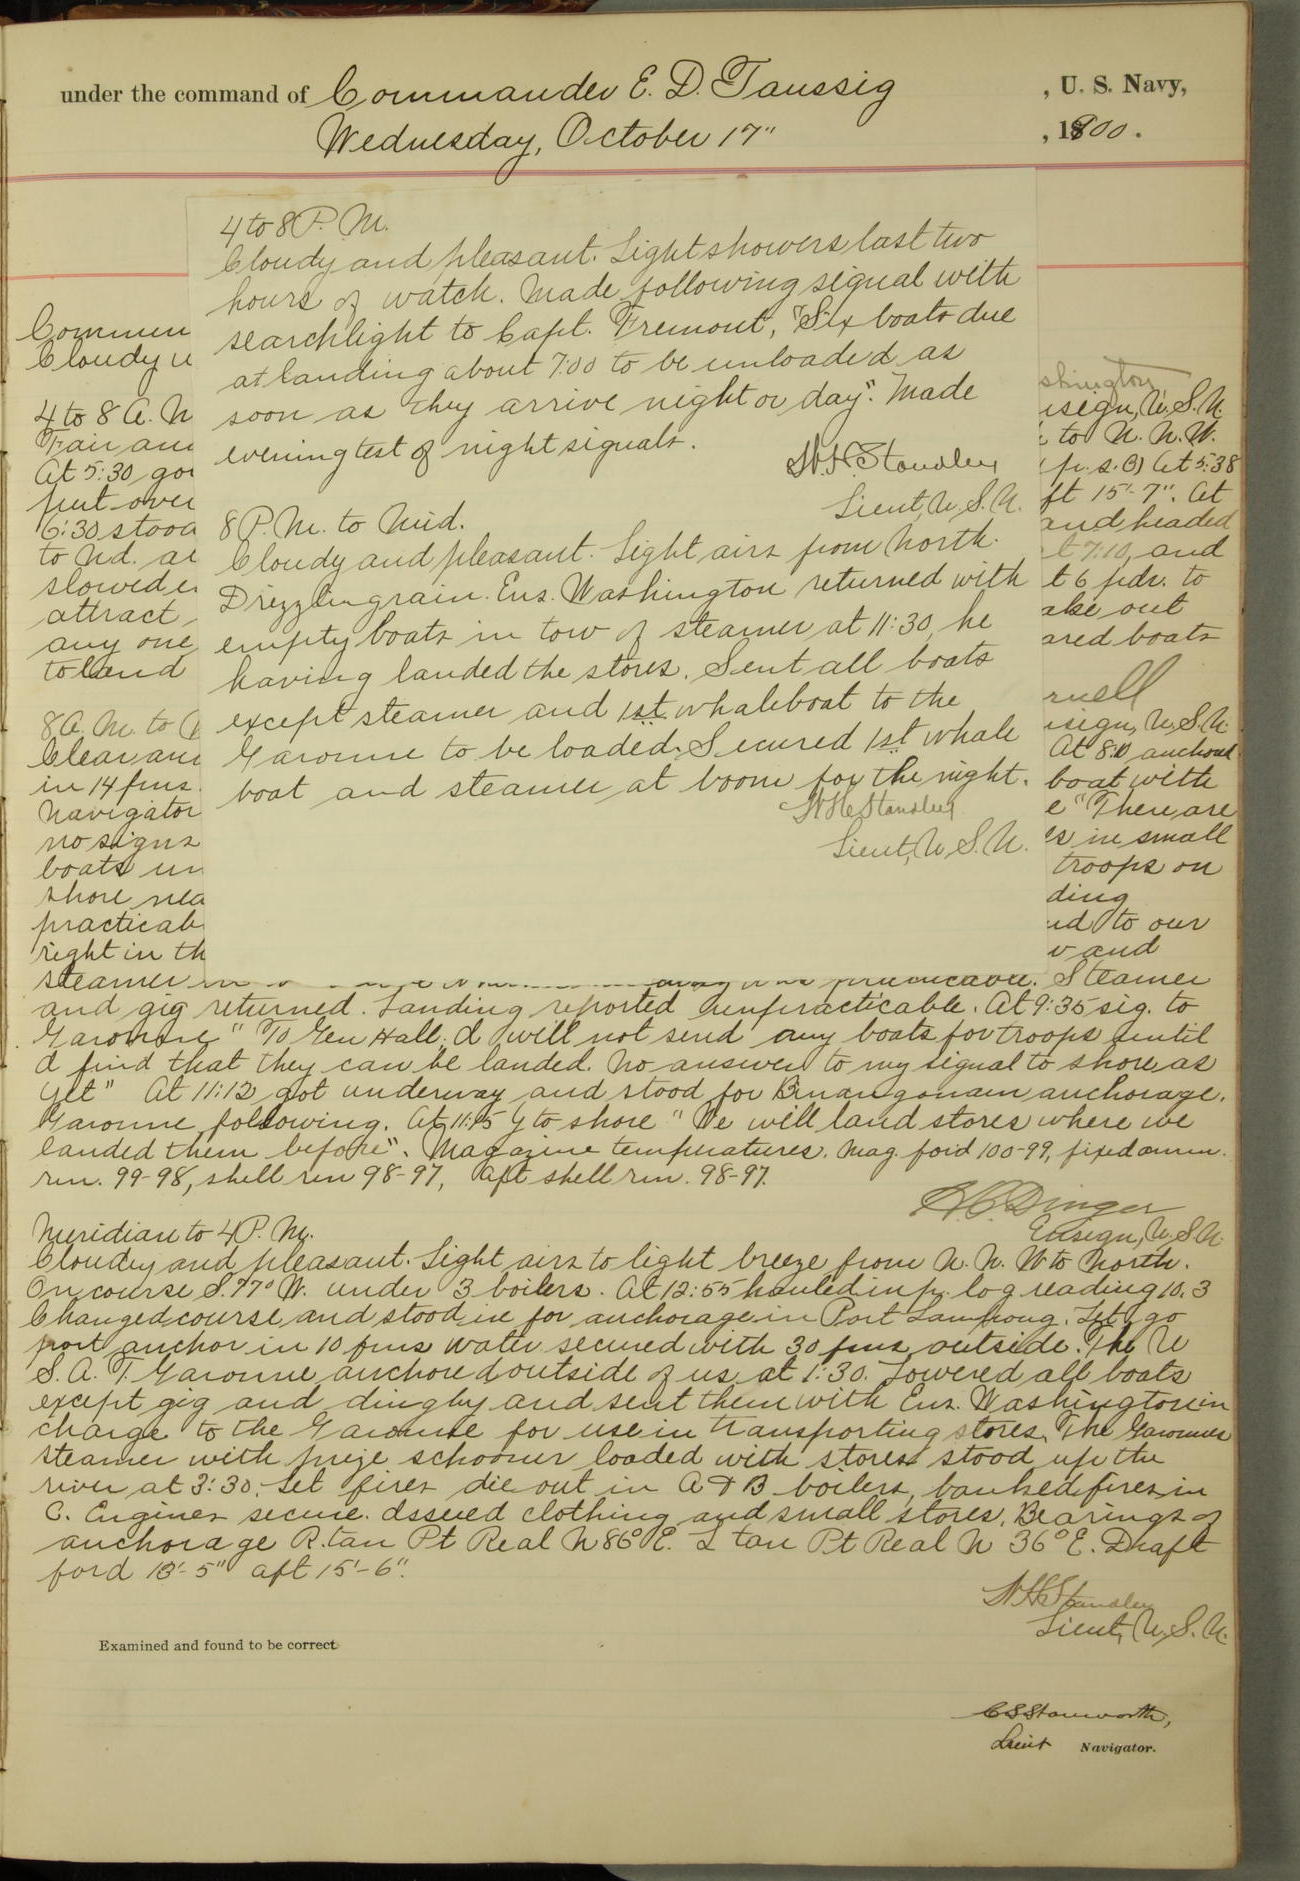 under the command of Commander E. D. Taussig , U. S. Navy,
Wednesday, October 17" , 1900.
4 to 8 P. M.
Cloudy and pleasant. Light showers last two
hours of watch. Made following signal with
searchlight to Capt. Fremont, "Six boats due
at landing about 7.00 to be unloaded as
soon as they arrive night or day". Made
evening test of night signals.
W. H. Standley
Lieut, U. S. N.
8 P. M. to Mid.
Cloudy and pleasant. Light airs from North.
Drizzling rain. Ens. Washington returned with
empty boats in tow of steamer at 11:30, he
having landed the stores. Sent all boats
except steamer and 1st whaleboat to the
Garonne to be loaded. Secured 1st whale
boat and steamer at boom for the night.
W H Standley
Lieut, U. S. N.
Commen
Cloudy
shington
4 to 8 A. M
nsign, U. S. N.
Fair and
to N. N. W.
At 5:30 go
(p. s. B) At 5:38
put over
ft 15'-7". At
6:30 stood
and headed
to Nd. a
t 7:10, and
slowed
t 6 pdr. to
attract
ake out
any one
ared boats
to land
8 A. M. to
nsign, U. S. N.
Clear and
At 8:10 anchored
in 14 fms.
boat with
Navigator
e "There are
no signs
es in small
boats un
troops on
shore nea
ding
practicab
nd to our
right in th
and
steamer practicable. Steamer
and gig returned. Landing reported impracticable. At 9:35 sig. to
Garonne "To Gen Hall, I will not send any boats for troops until
I find that they can be landed. No answer to my signal to shore as
yet" At 11:12 got underway and stood for Binangonan anchorage.
Garonne following. At 11:15 sig to shore "We will land stores where we
landed them before". Magazine temperatures. Mag. for'd 100-99, fixed amm.
rm. 99-98, shell rm 98-97, aft shell rm. 98-97.
H. C. Dinger
Ensign, U. S. N.
Meridian to 4 P. M.
Cloudy and pleasant. Light airs to light breeze from N. N. W to North.
On course S. 77° W. under 3 boilers. At 12:55 hauled in p. log reading 10.3
Changed course and stood in for anchorage in Port Lampong. Let go
port anchor in 10 fms water secured with 30 fms outside. The U
S. A. T. Garonne anchored outside of us at 1:30. Lowered all boats
except gig and dinghy and sent them with Ens. Washington in
charge to the Garonne for use in transporting stores. The Garonnes
steamer with prize schooner loaded with stores stood up the
river at 3:30. Let fires die out in A & B boilers, banked fires in
C. Engines secure. Issued clothing and small stores. Bearings of
anchorage R. tan Pt Real N 86° E. L tan Pt Real N 36° E. Draft
ford 13'-5" aft 15'-6".
W H Standley
Lieut, U. S. N.
Examined and found to be correct
C S Stanworth,
Lieut Navigator.